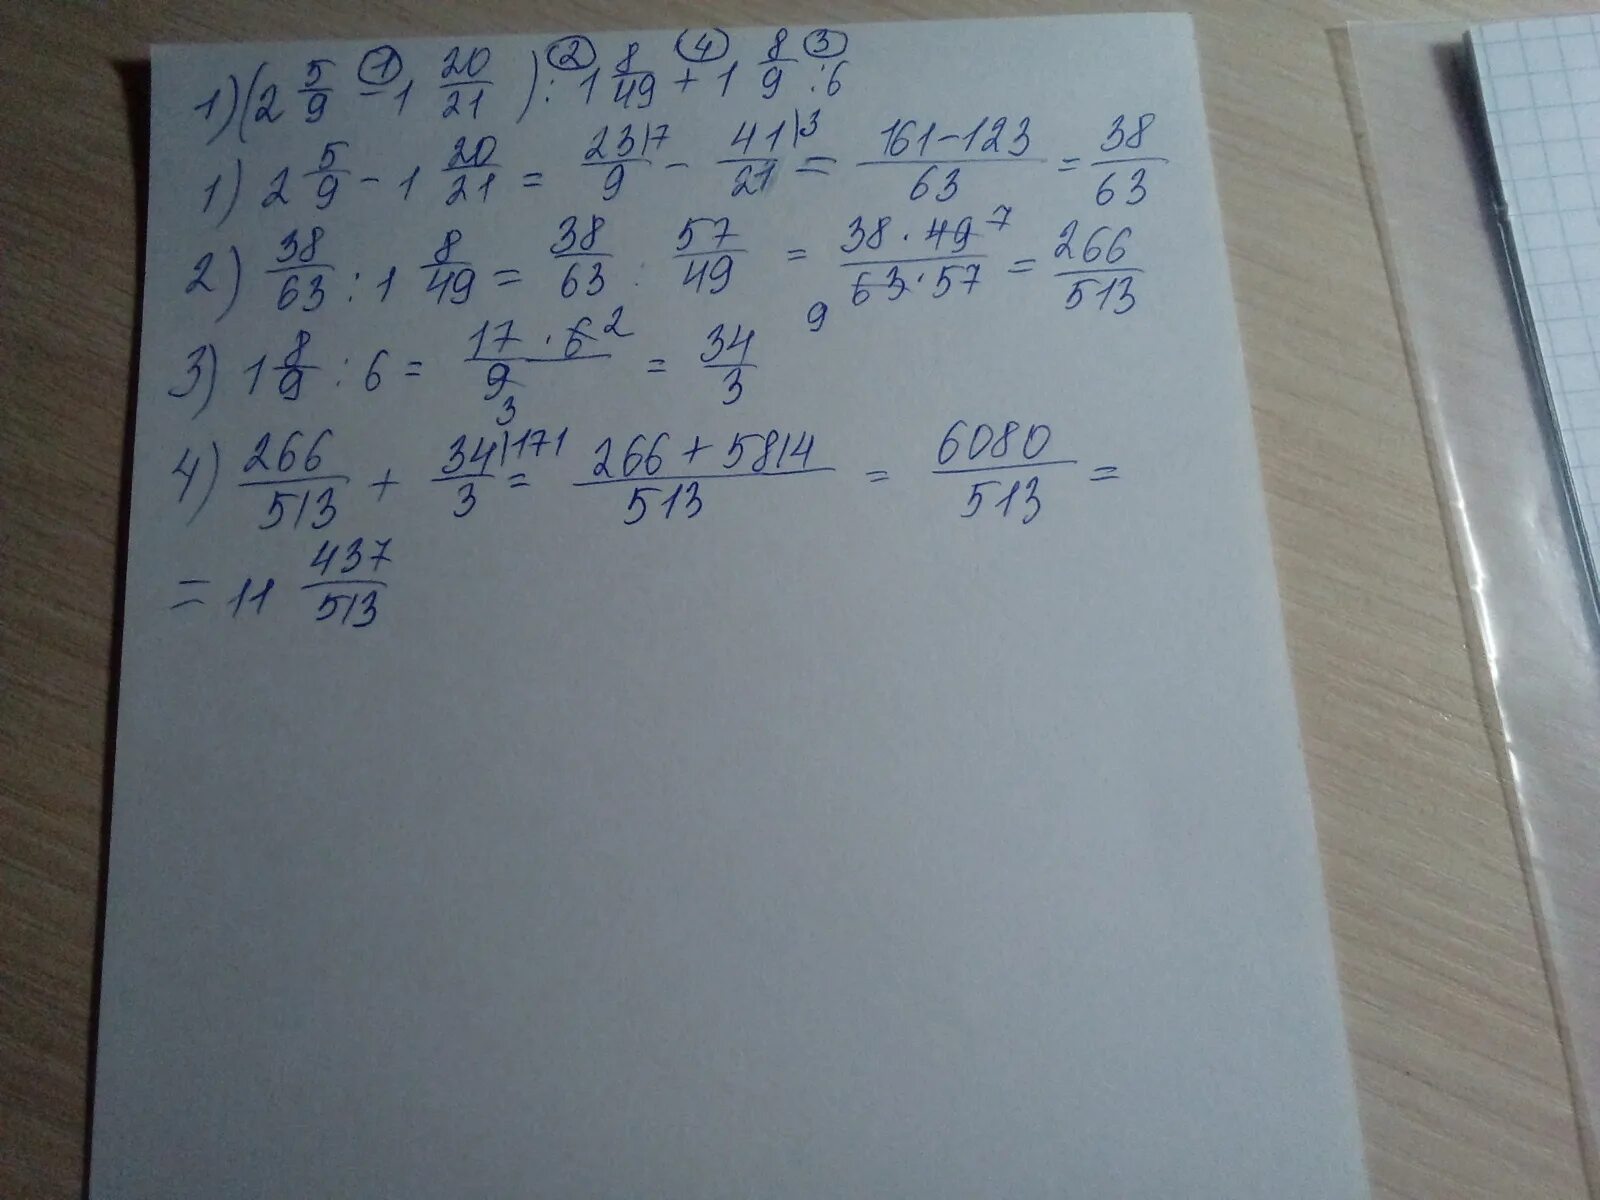 1) (2 5/9 - 1 20/21) : 1 8/49 + 1 8/9 : 6 ① ② ④ ③
1) 2 5/9 - 1 20/21 = 23/9 |7 - 41/21 |3 = 161-123/63 = 38/63
2) 38/63 : 1 8/49 = 38/63 : 57/49 = 38·49 7/63·57 9 = 266/513
3) 1 8/9 : 6 = 17·6 2/9 3 = 34/3
4) 266/513 + 34/3 |171 = 266+5814/513 = 6080/513 =
= 11 437/513